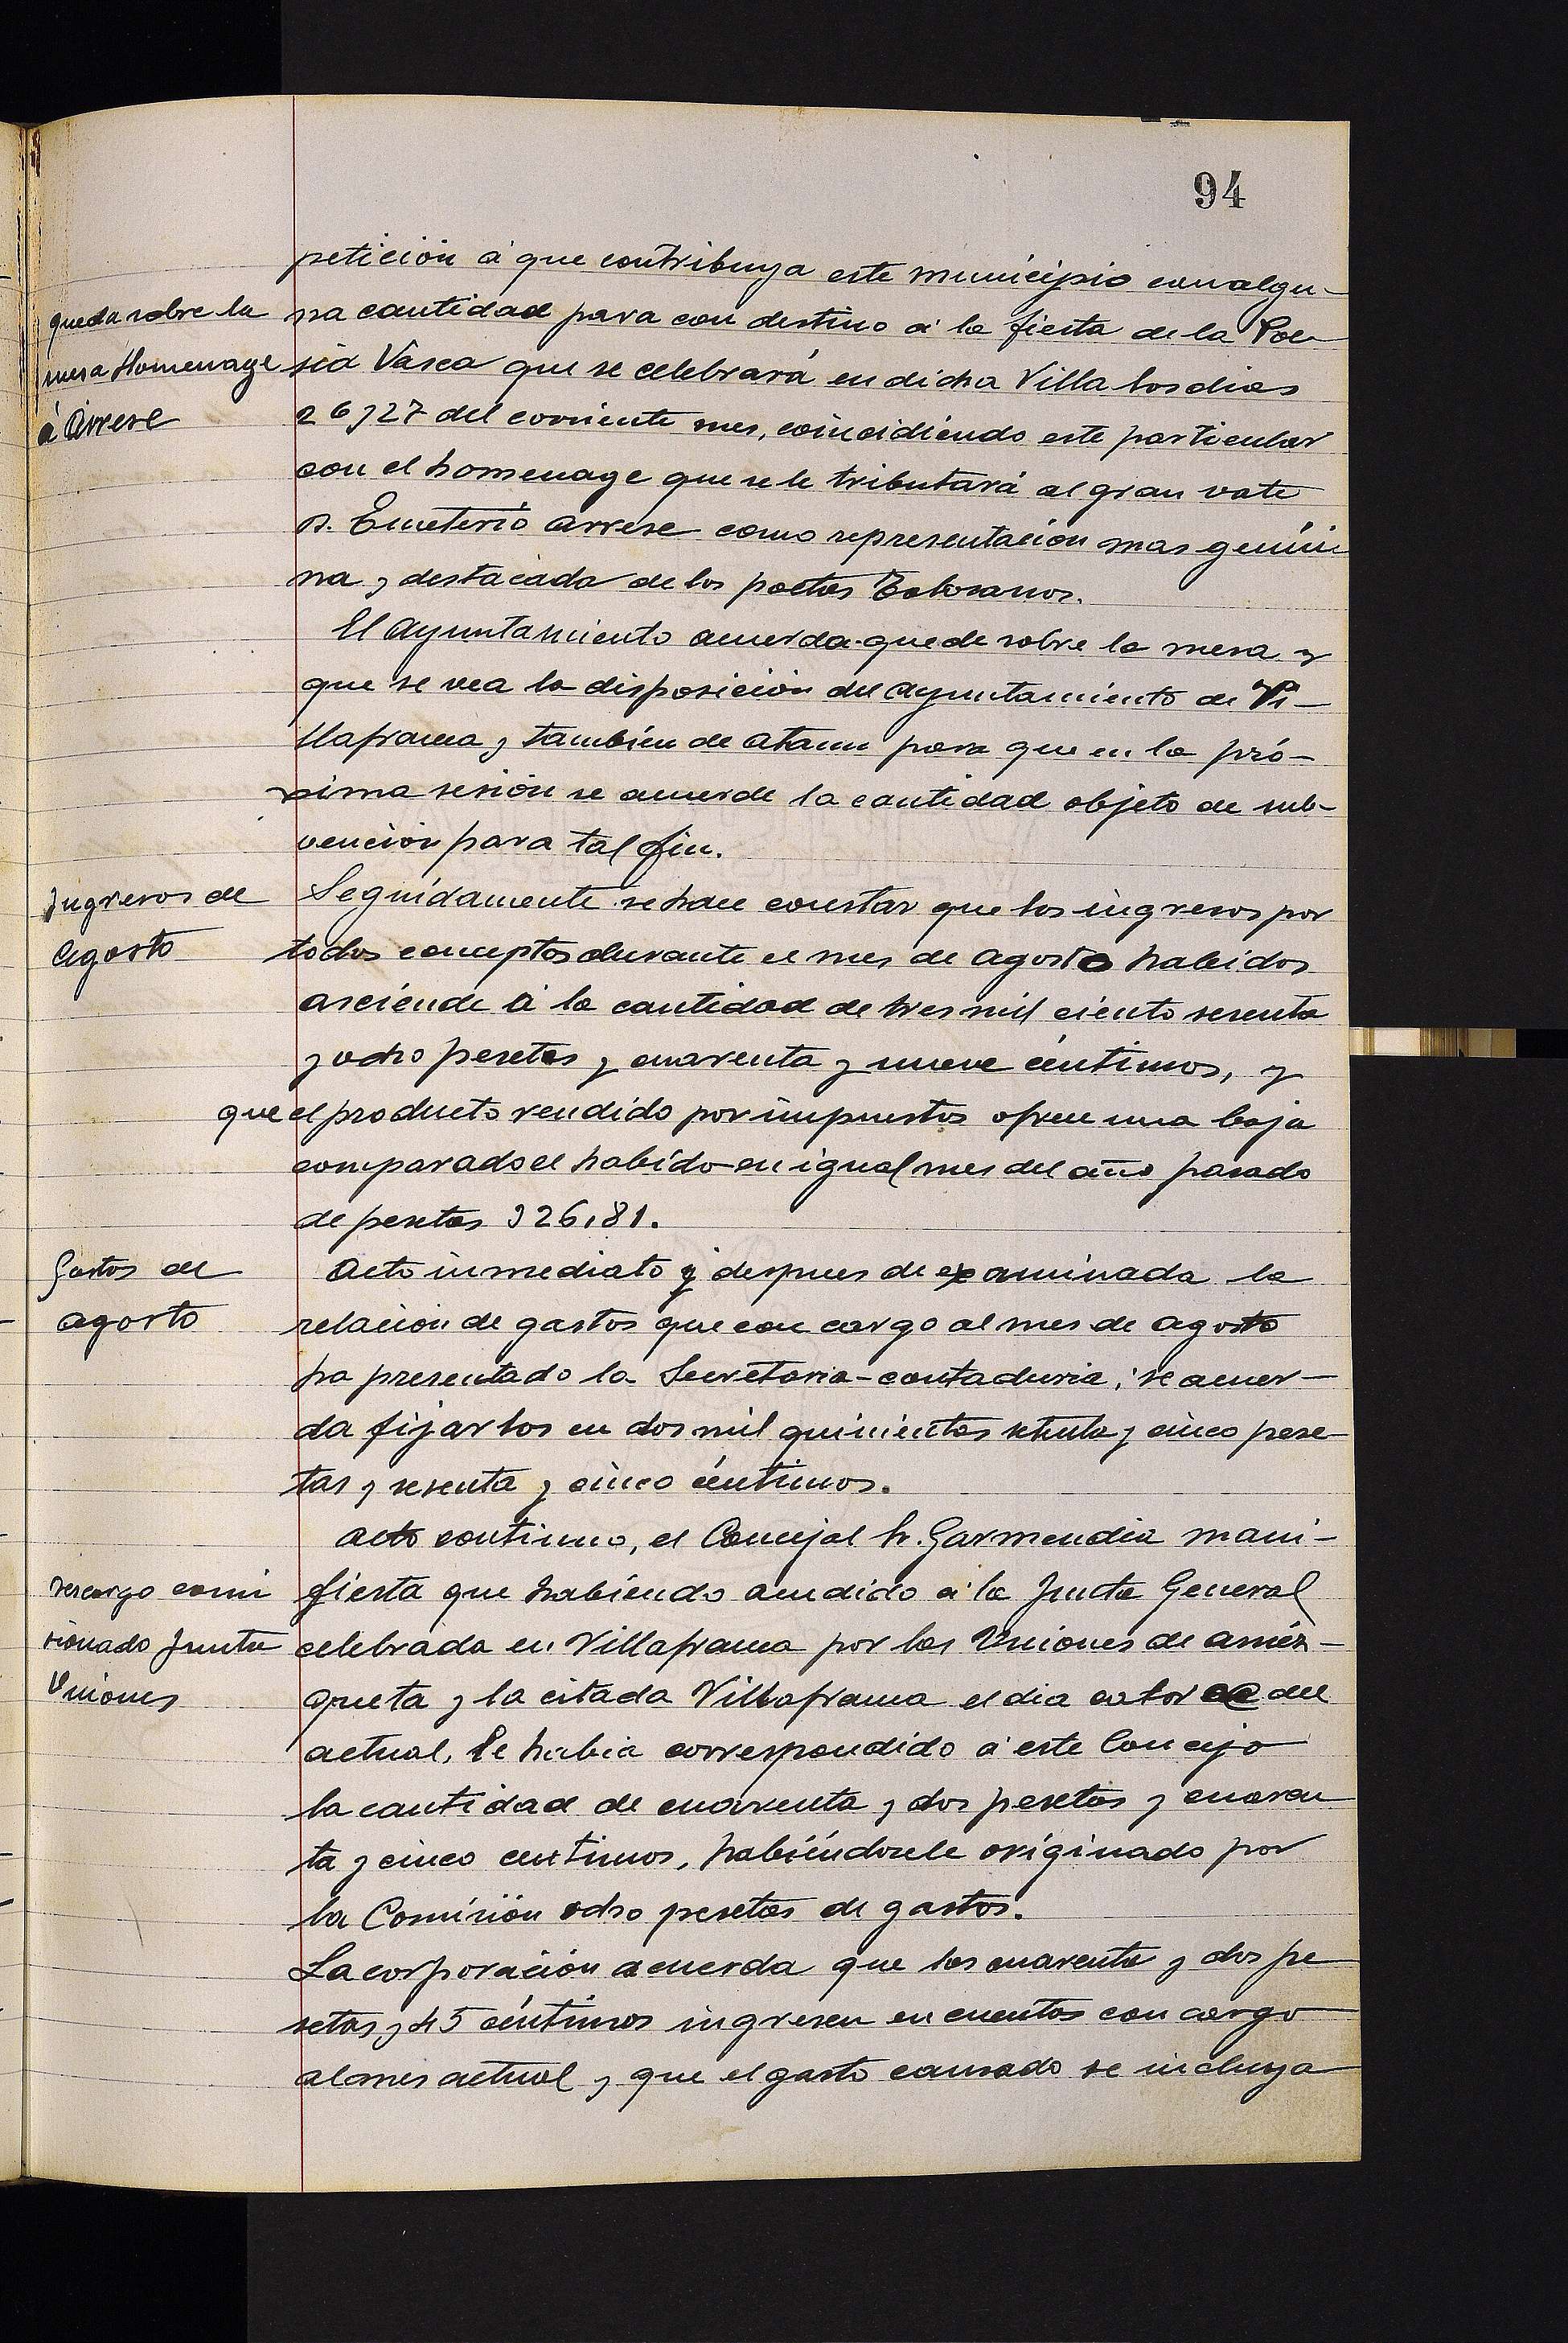 94
petición á que contribuya este municipio con algu-
queda sobre la
mesa Homenage
á Arrese
na cantidad para con destino á la fiesta de la Poe
sia Vasca que se celebrará en dicha Villa los dias
26 y 27 del corriente mes, coincidiendo este particular
con el homenage que se le tributará al gran vate
D. Emeterio Arrese como representación mas genüi
na y destacada de los poetas Tolosanos.
El Ayuntamiento acuerda quede sobre la mesa y
que se vea la disposición del Ayuntamiento de Vi-
llafranca y también de Ataun para que en la pró-
xima sesión se acuerde la cantidad objeto de sub-
vención para tal fin.
Ingresos de
Agosto
Seguidamente se hace constar que los ingresos por
todos conceptos durante el mes de Agosto habidos
asciende á la cantidad de tres mil ciento sesenta
y ocho pesetas y cuarenta y nueve céntimos, y
que el producto rendido por impuestos ofrece una baja
comparado el habido en igual mes del año pasado
de pesetas 326,81.
Gastos de
agosto
Acto inmediato y despues de examinada la
relación de gastos que con cargo al mes de agosto
ha presentado la Secretaria-contaduria, se acuer-
da fijarlos en dos mil quinientas setenta y cinco pese-
tas y sesenta y cinco céntimos.
Acto continuo, el Concejal Sr. Garmendia mani-
Descargo comi
sionado Junta
Uniones
fiesta que habiendo acudido á la Junta General
celebrada en Villafranca por las Uniones de Améz-
queta y la citada Villafranca el dia catorce del
actual, le habia correspondido á este Concejo
la cantidad de cuarenta y dos pesetas y cuaren
ta y cinco centimos, habiéndosele originado por
la Comisión ocho pesetas de gastos.
La corporación acuerda que las cuarenta y dos pe
setas y 45 céntimos ingresen en cuentas con cargo
al mes actual y que el gasto causado se incluya